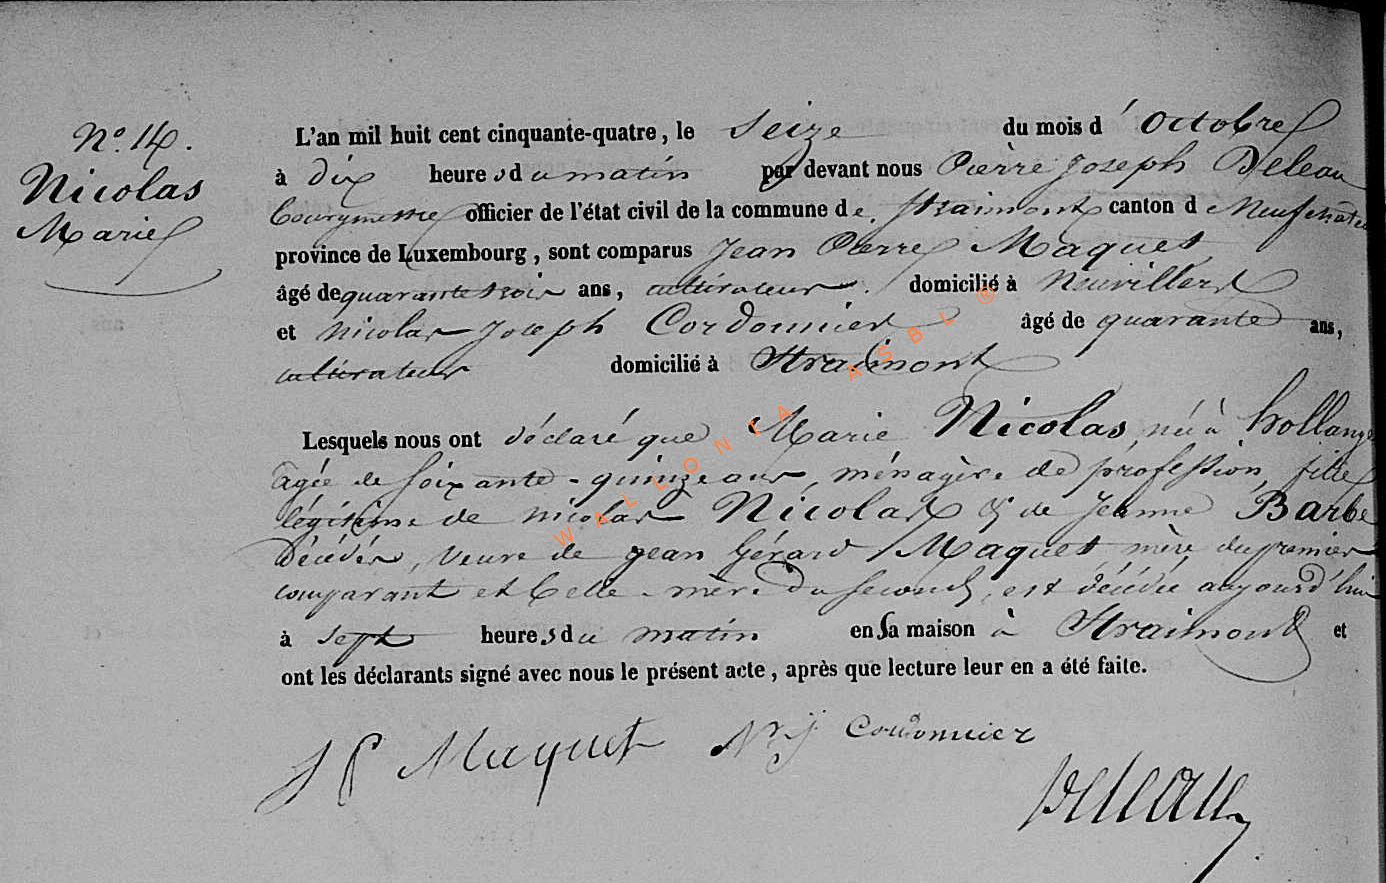 N° 14.
Nicolas
Marie
L'an mil huit cent cinquante-quatre, le seize du mois d'octobre
à dix heures du matin par devant nous Pierre Joseph Deleau
bourgmestre officier de l'état civil de la commune de Straimont canton de Neufchâteau
province de Luxembourg, sont comparus Jean Pierre Maquet
âgé de quarante trois ans, cultivateur. domicilié à Neuvillers
et Nicolas Joseph Cordonnier âgé de quarante ans,
cultivateur domicilié à Straimont
Lesquels nous ont déclaré que Marie Nicolas, née à hollange
agée de soixante-quinze ans, ménagère de profession, fille
légitime de nicolas Nicolas & de Jeanne Barbe
décédés, veuve de jean Gérard Maquet, mère du premier
comparant et belle-mère du second, est décédée aujourd'hui
à sept heures du matin en sa maison à Straimont et
ont les déclarants signé avec nous le présent acte, après que lecture leur en a été faite.
J P Maquet N. j Cordonnier
Deleau
WALLONIA ASBL ®